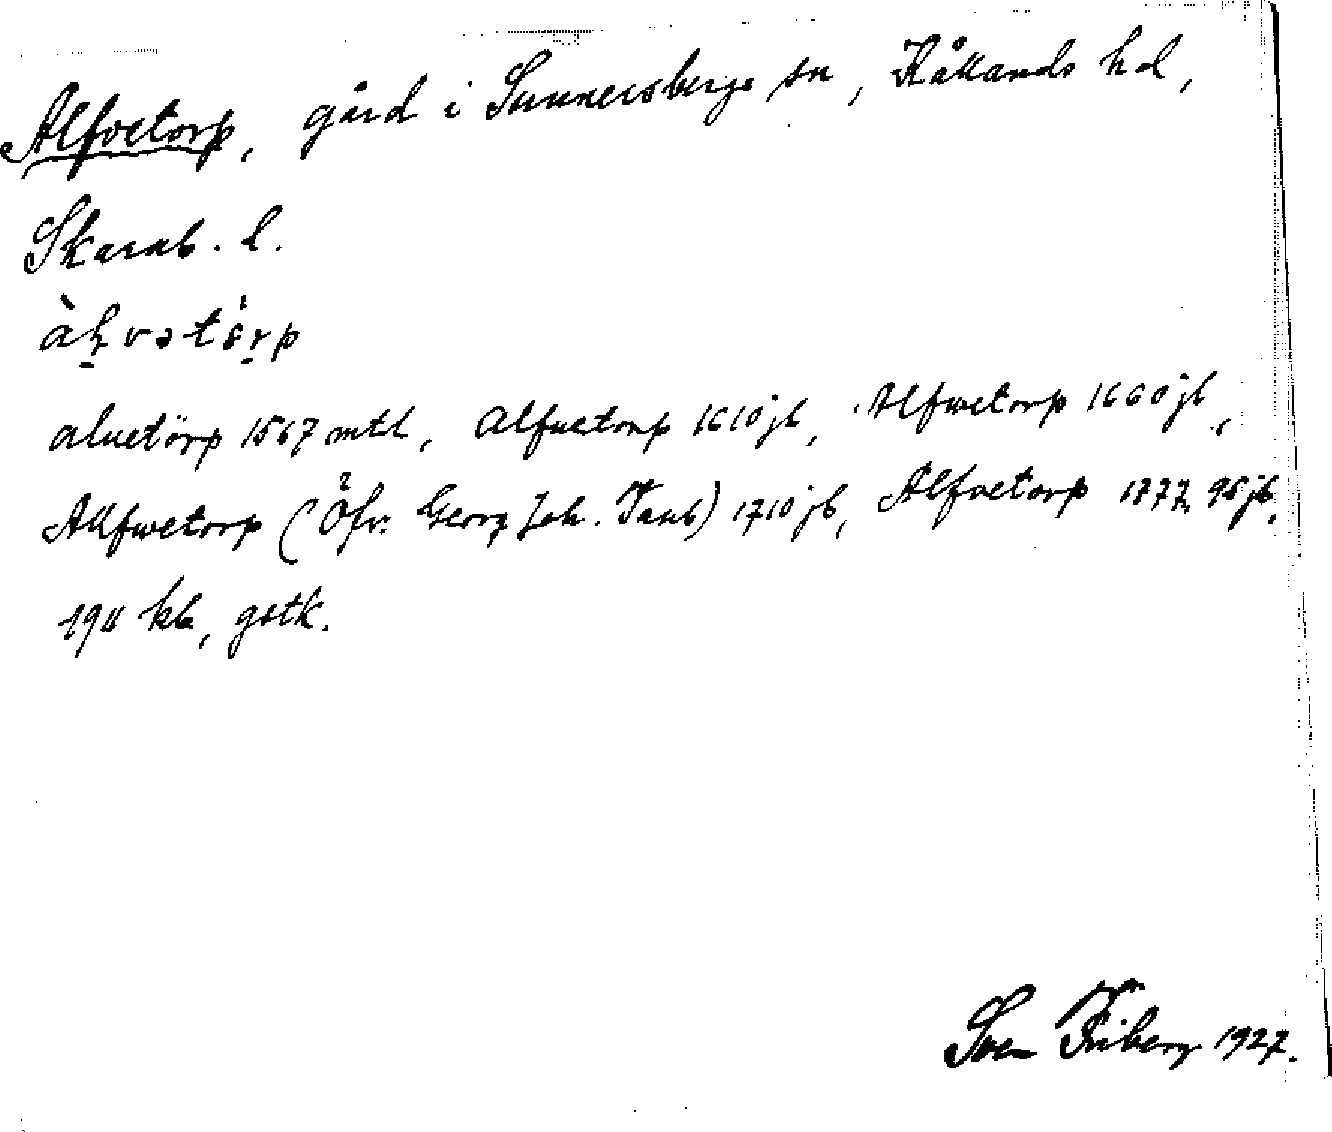 Alfvetorp, gård i Sunnersbergs sn, Kållands hd,
Skarab. l.
àḷvətö́rp
aluetörp 1567 mtl, Alfuetorp 1610 jb, Alfwetorp 1660 jb,
Allfwetorp (Öfv. Georg Joh. Taub) 1710 jb, Alfvetorp 1777, 95 jb,
1911 kb, gstk.
Sven Friberg 1927.